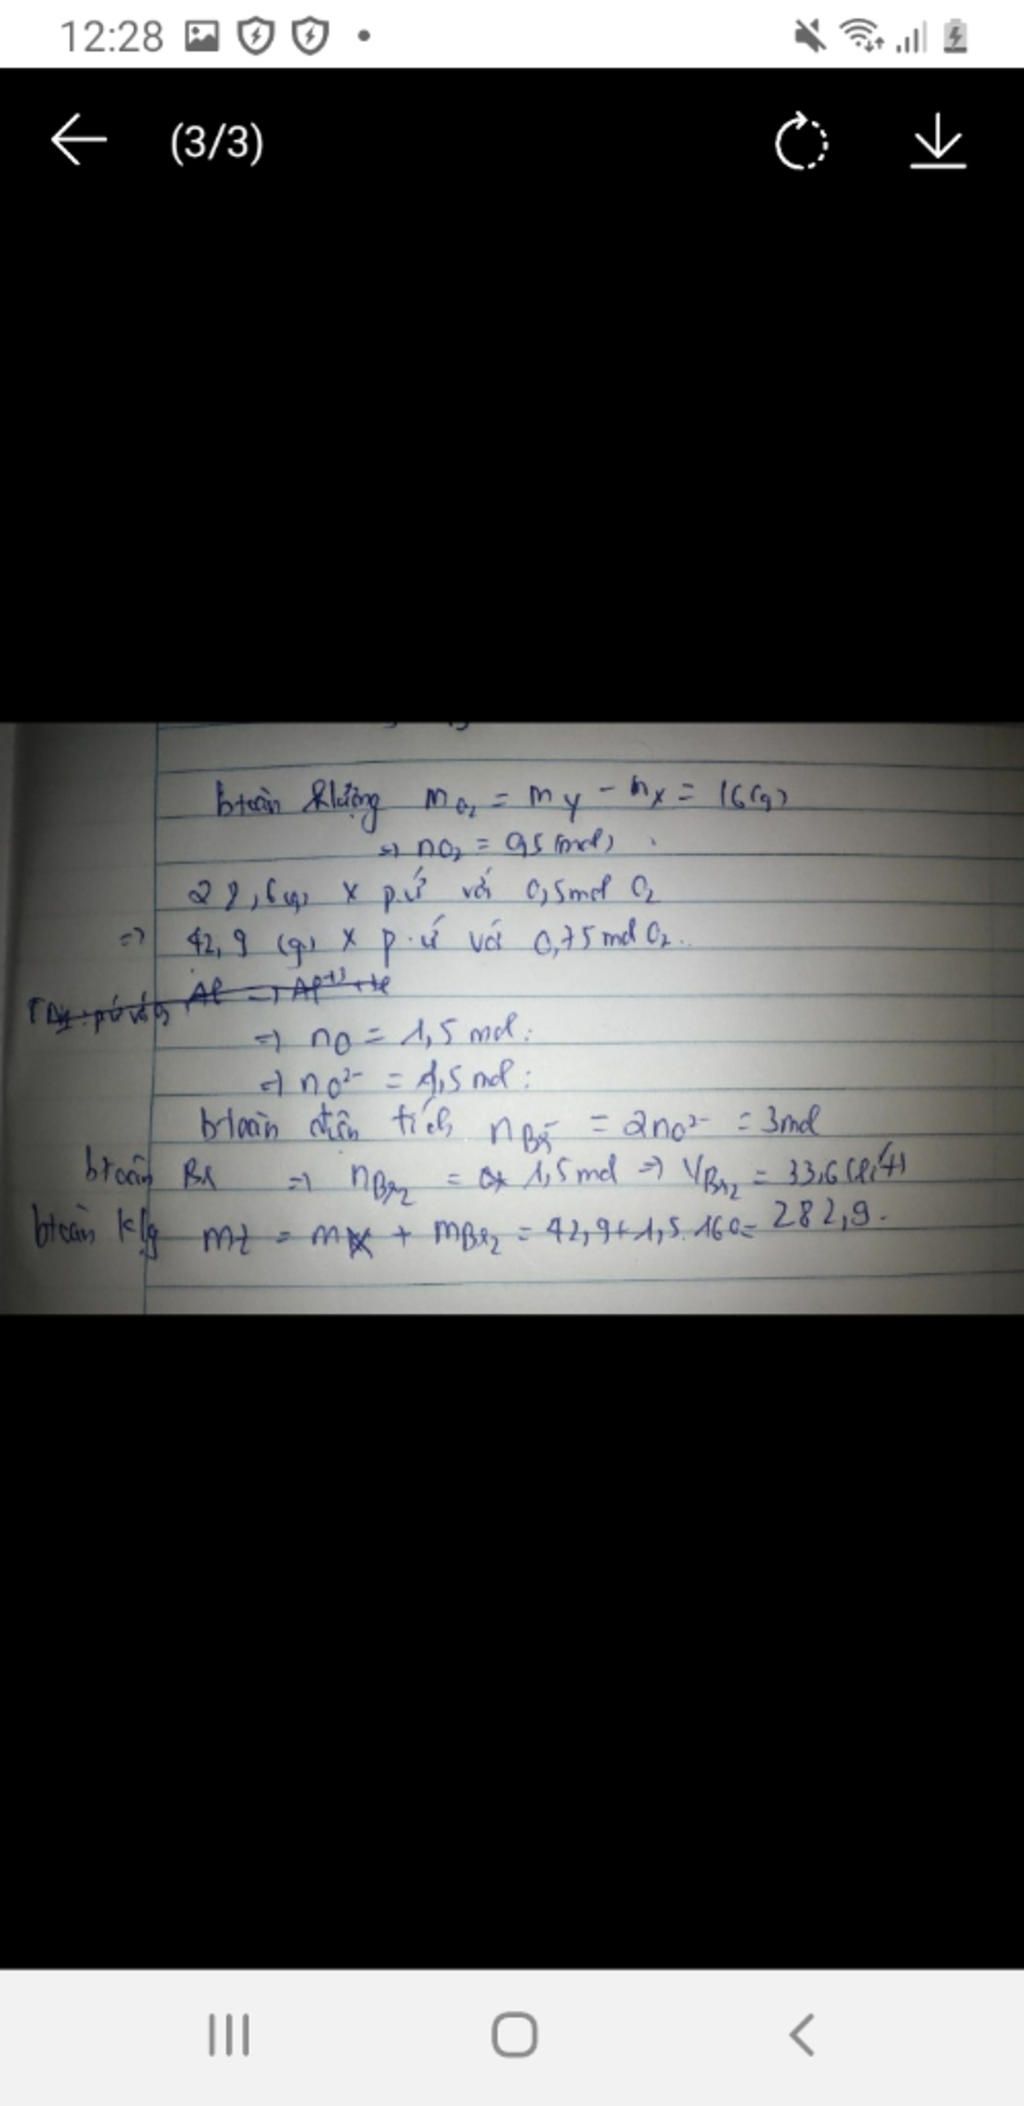 12:28
(3/3)
btoàn klượng mO₂ = mY - mX = 16(g)
⇒ nO₂ = 0,5 (mol)
28,6(g) X p.ứ với 0,5mol O₂
⇒ 42,9 (g) X p.ứ với 0,75 mol O₂.
⇒ nO = 1,5 mol.
⇒ nO²⁻ = 1,5 mol.
btoàn điện tích nBr⁻ = 2nO²⁻ = 3mol
btoàn Br ⇒ nBr₂ = 1,5 mol ⇒ VBr₂ = 33,6 (lít)
btoàn klg mZ = mX + mBr₂ = 42,9 + 1,5.160 = 282,9.